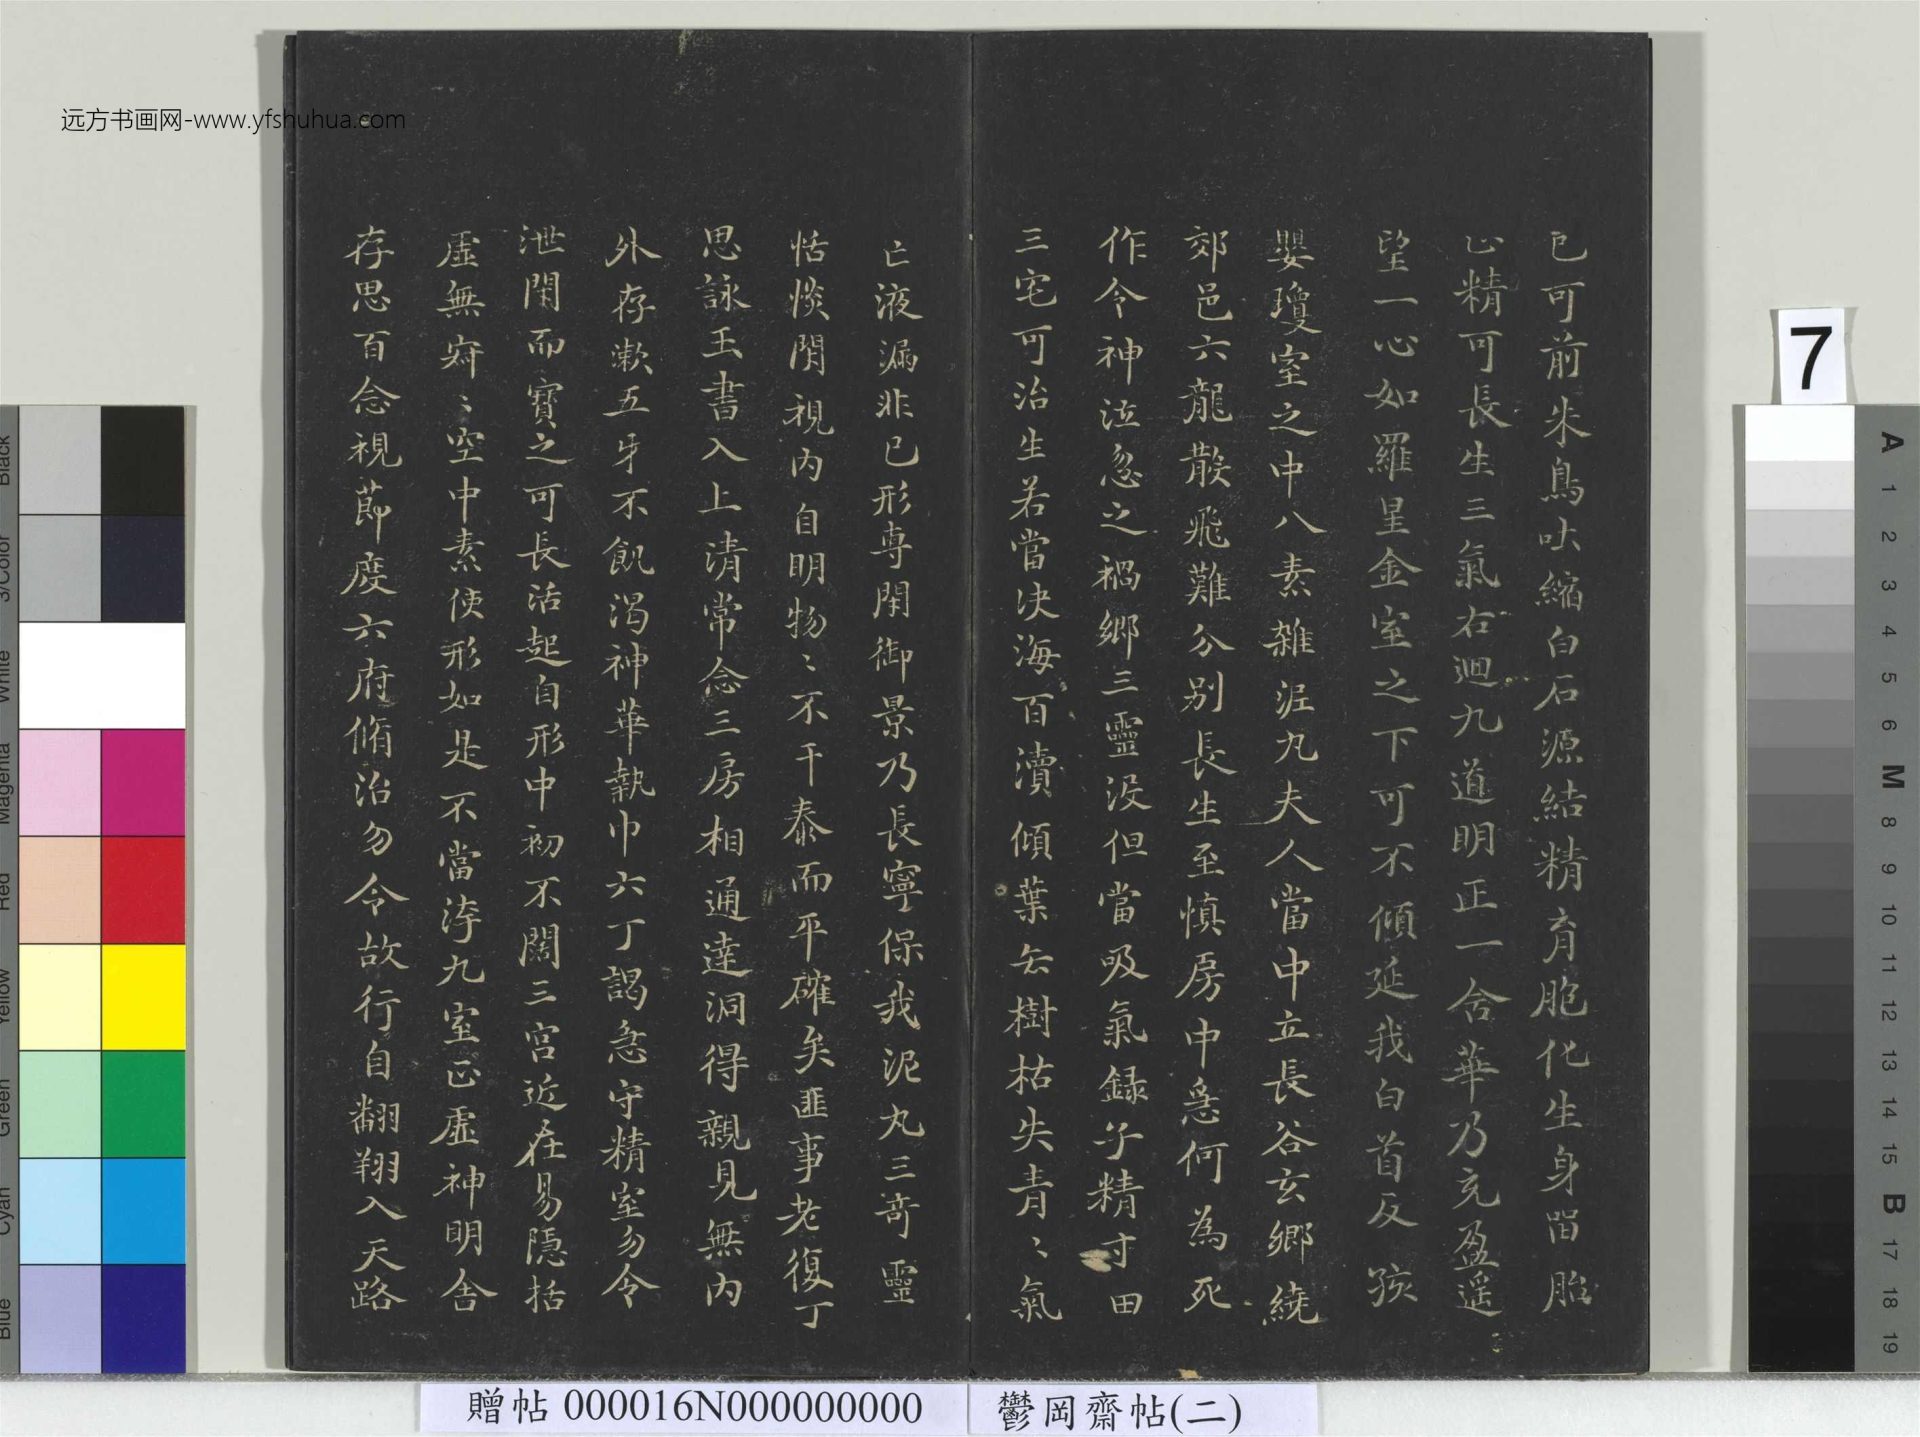 远方书画网-www.yfshuhua.com
已可前朱鳥吐縮白石源結精育胞化生身留胎
止精可長生三氣右迴九道明正一含華乃充盈遥
望一心如羅星金室之下可不傾延我白首反孩
嬰瓊室之中八素雜泥丸夫人當中立長谷玄鄉繞
郊邑六龍散飛難分别長生至慎房中急何為死
作令神泣忽之禍鄉三靈没但當吸氣録子精寸田
三宅可治生若當决海百瀆傾葉去樹枯失青〻氣
亡液漏非已形專閑御景乃長寧保我泥丸三奇靈
恬惔閑視内自明物〻不干泰而平確矣匪事老復丁
思詠玉書入上清常念三房相通達洞得親見無内
外存漱五牙不飢渴神華執巾六丁謁急守精室勿令
泄閑而寶之可長活起自形中初不闊三宫近在易隱括
虚無寂〻空中素使形如是不當汙九室正虚神明舍
存思百念視節度六府脩治勿令故行自翱翔入天路
7
Black
3/Color
White
Magenta
Red
Yellow
Green
Cyan
Blue
A
1
2
3
4
5
6
M
8
9
10
11
12
13
14
15
B
17
18
19
贈帖 000016N000000000
鬱岡齋帖(二)